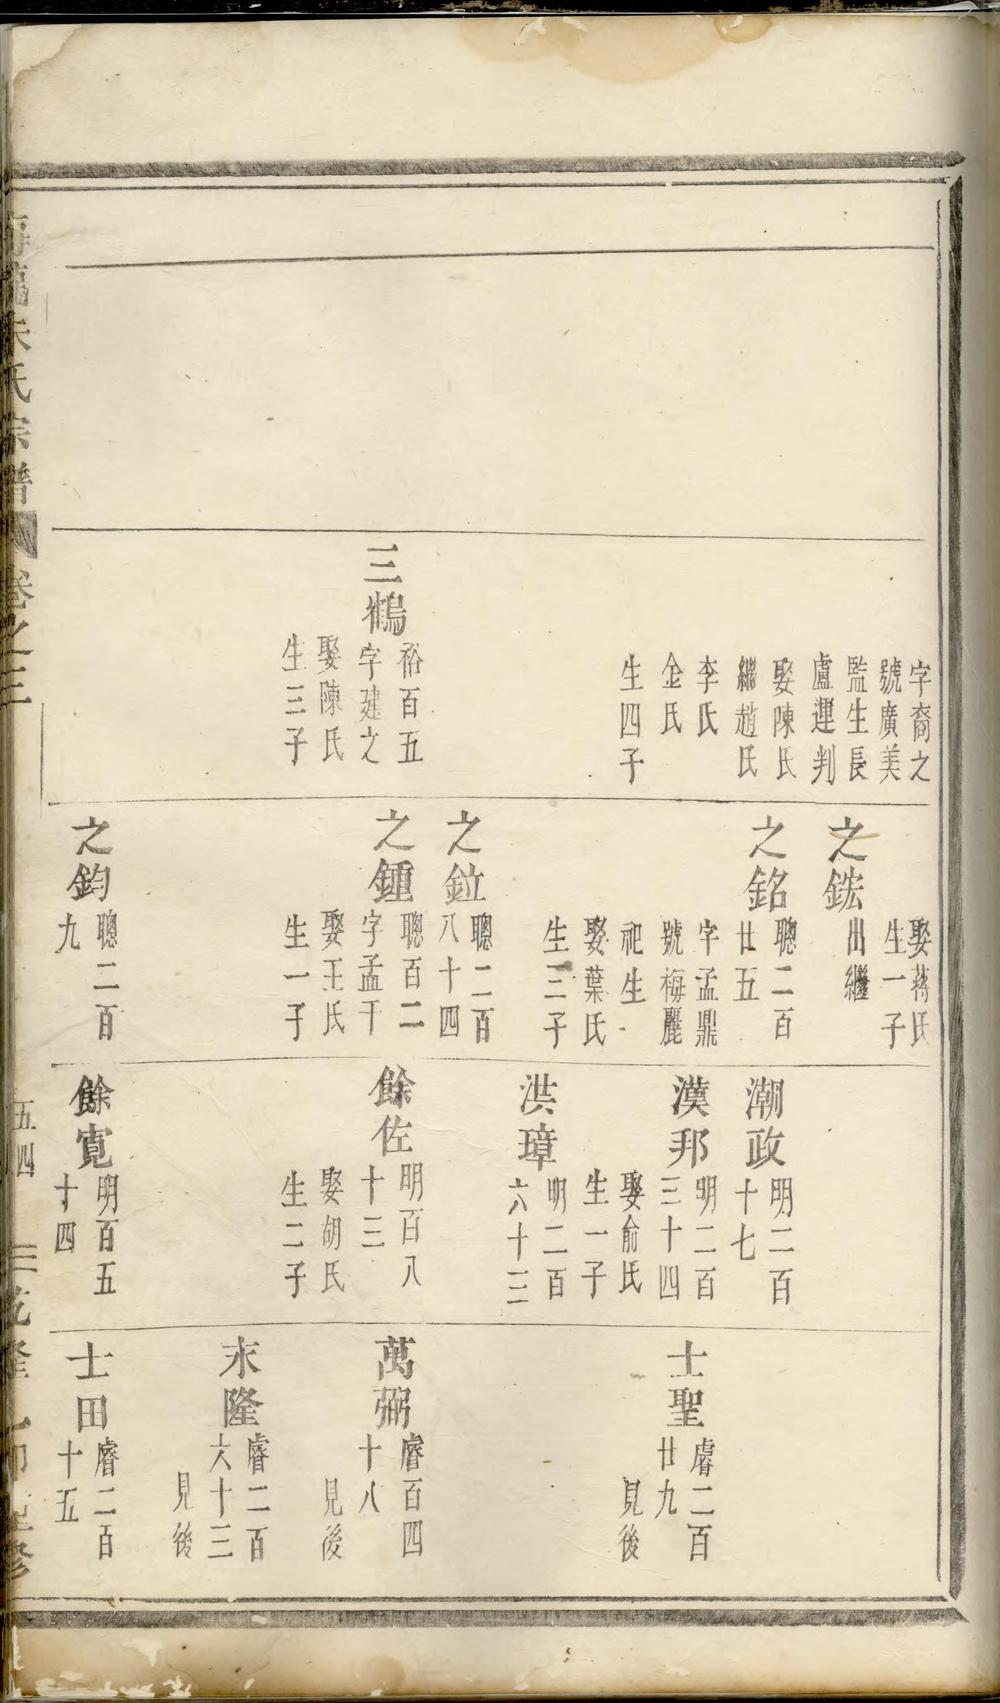 字裔之
號廣美
監生長
盧運判
娶陳氏
繼趙氏
李氏
金氏
生四子
三鶴
裕百五
字建之
娶陳氏
生三子
娶蔣氏
生一子
之鋐
出繼
之銘
聰二百
廿五
字孟鼎
號梅麗
祀生
娶葉氏
生三子
之鉝
聰二百
八十四
之鍾
聰百二
字孟千
娶王氏
生一子
之鈞
聰二百
九
潮政
明二百
十七
漢邦
明二百
三十四
娶俞氏
生一子
洪璋
明二百
六十三
餘佐
明百八
十三
娶胡氏
生二子
餘寬
明百五
十四
士聖
睿二百
廿九
見後
萬弼
睿百四
十八
見後
末隆
睿二百
六十三
見後
士田
睿二百
十五
朱氏宗譜
卷之三
五四
乾隆乙卯